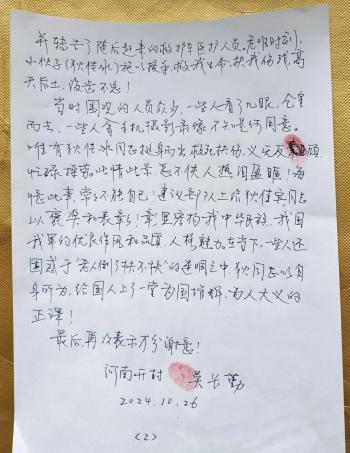 并转告了随后赶来的救护车医护人员。危难时刻,
小伙子(狄佳冰)施以援手,救我生命,扶我伤残,高
天厚土,没齿不忘!
当时围观的人员众多,一些人看了几眼,仓皇
而去,一些人拿手机摄影录像不知是何用意。
唯有狄佳冰同志挺身而出救死扶伤,义无反顾
忙碌操劳。此情此景,怎不使人热泪盈眶!每
忆此事,常不能自已!建议部队上给狄佳宾同志
以褒奖和表彰!彰显宏扬我中华民族,我国
我军的优良作风和品质,人格魅力。在当下,一些人还
困惑于“老人倒了扶不扶”的迷洞之中,狄同志以自
身所为,给国人上了一堂为国增辉,为人大义的
正课!
最后,再次表示万分谢意!
河南开封 吴长勤
2024.10.26
<2>